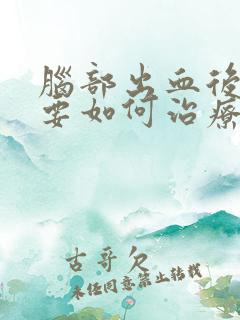 腦部出血後
要如何治療
古哥欠
未任同意禁止转载